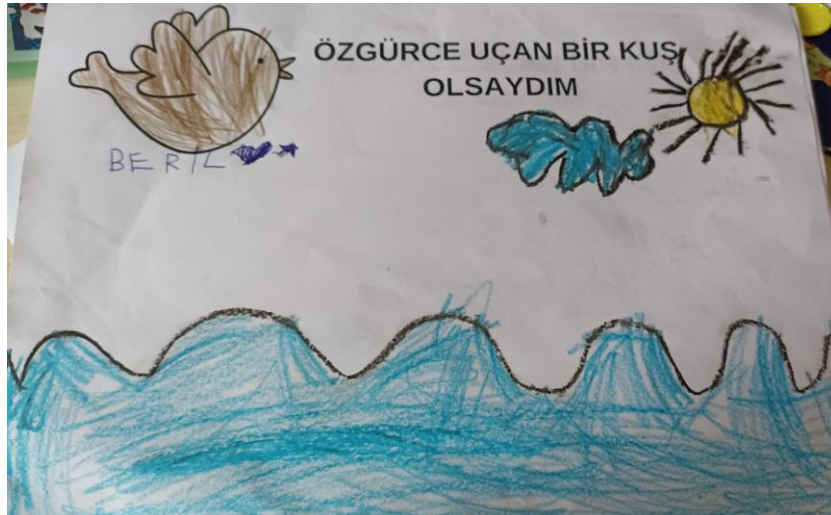 ÖZGÜRCE UÇAN BİR KUŞ
OLSAYDIM
BERİL